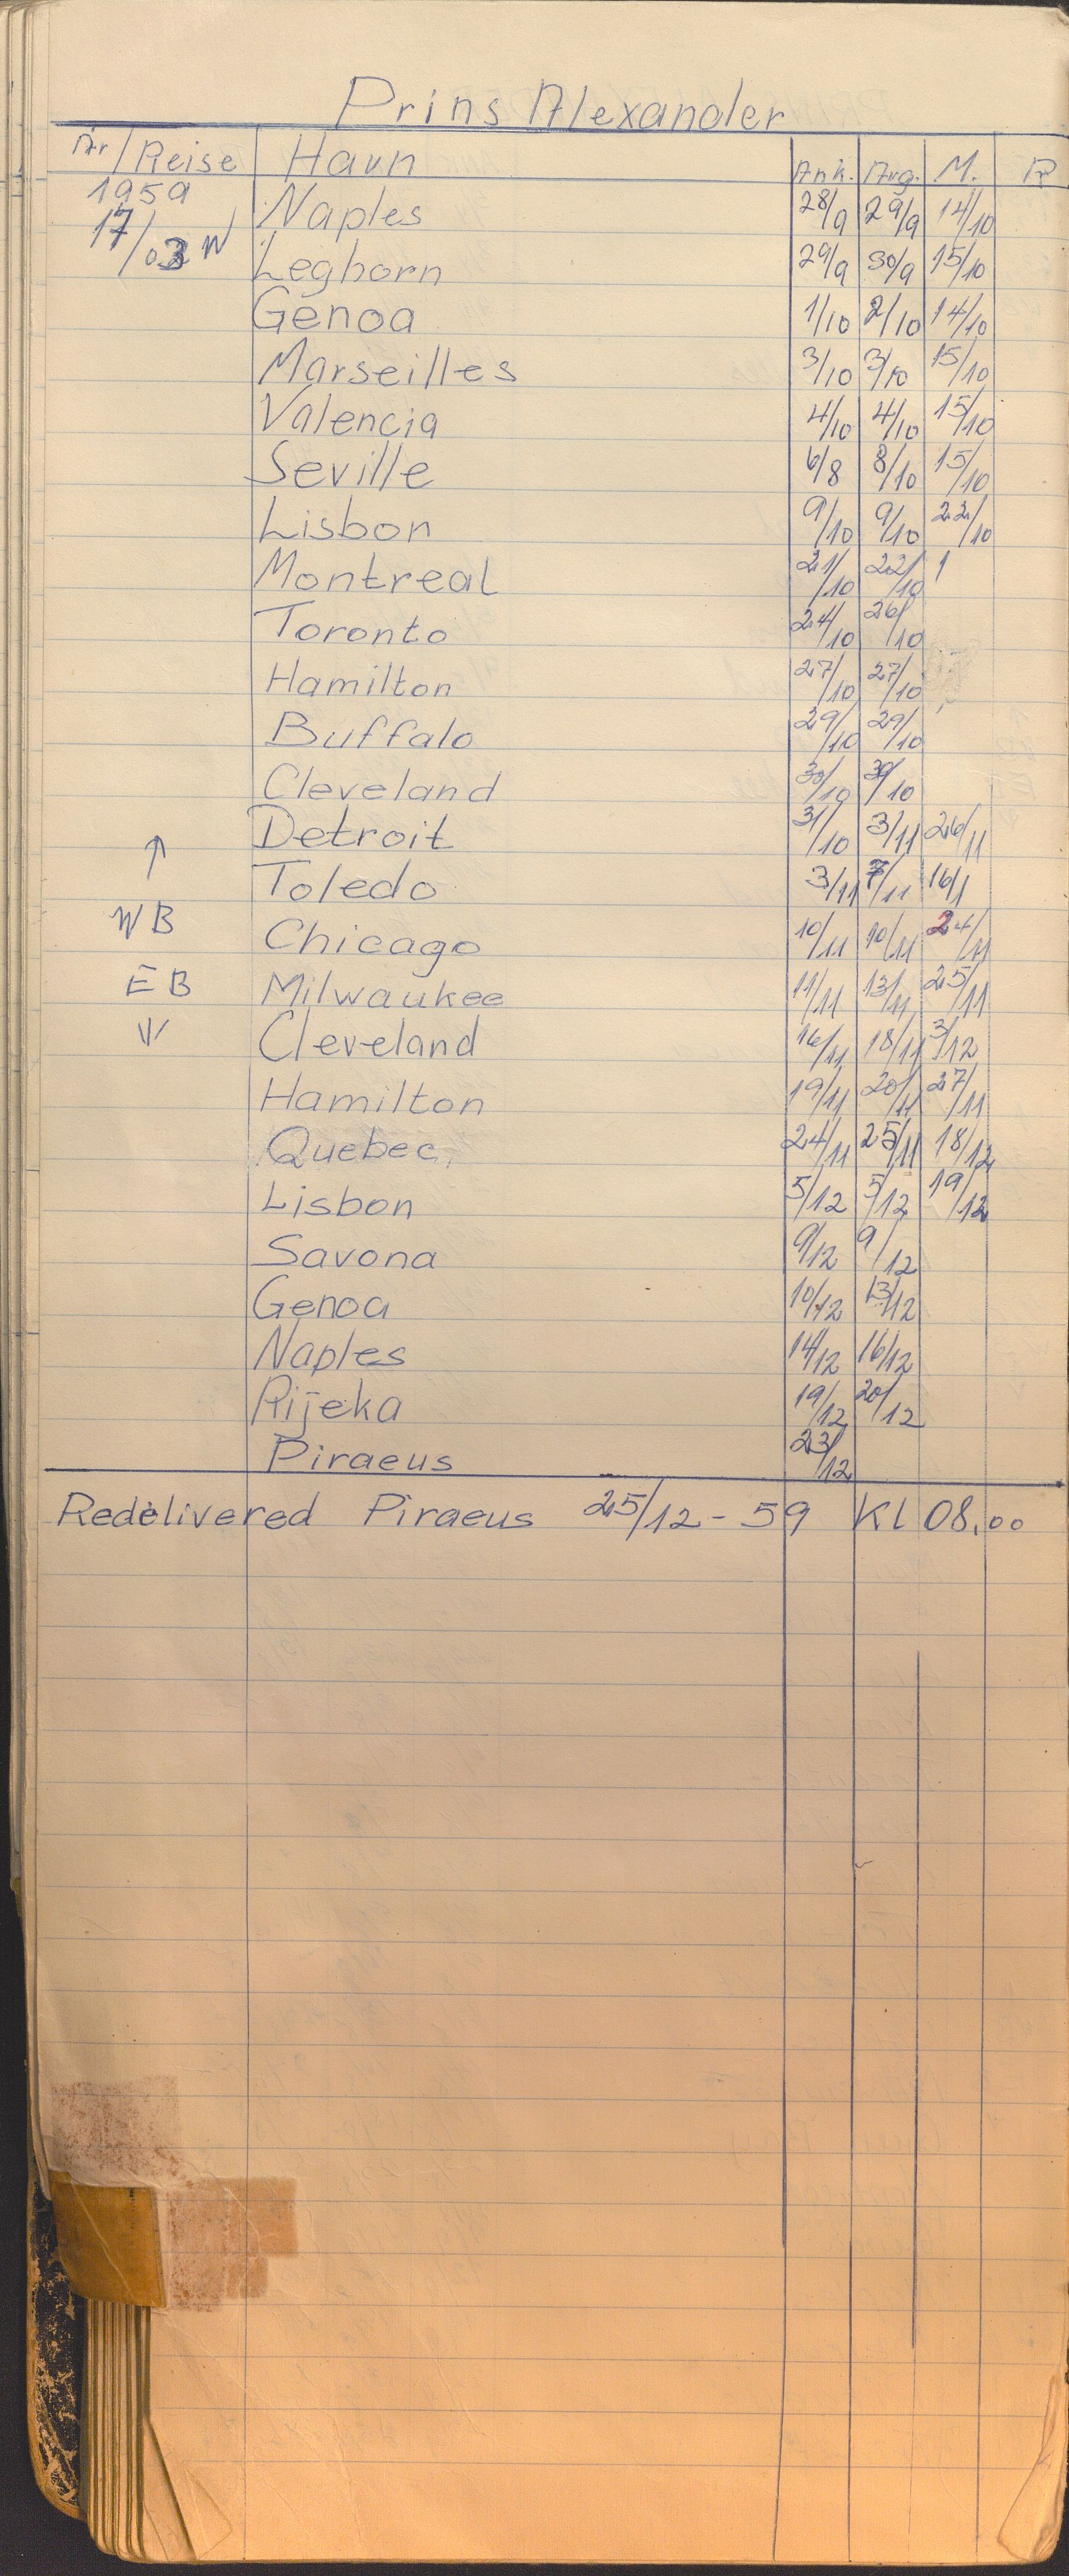 Prins Alexander
Nr / Reise Havn Ank. Avg. M. R
1959 Naples 28/9 29/9 14/10
17/03 W Leghorn 29/9 30/9 15/10
Genoa 1/10 2/10 14/10
Marseilles 3/10 3/10 15/10
Valencia 4/10 4/10 15/10
Seville 6/8 8/10 15/10
Lisbon 9/10 9/10 22/10
Montreal 21/10 22/10
Toronto 24/10 26/10
Hamilton 27/10 27/10
Buffalo 29/10 29/10
Cleveland 30/10 30/10
Detroit 31/10 3/11 26/11
↑ Toledo 3/11 7/11 16/1
WB Chicago 10/11 10/11 24/11
EB Milwaukee 11/11 13/11 25/11
↓ Cleveland 16/11 18/11 3/12
Hamilton 19/11 20/11 27/11
Quebec 24/11 25/11 18/12
Lisbon 5/12 5/12 19/12
Savona 9/12 9/12
Genoa 10/12 13/12
Naples 14/12 16/12
Rijeka 19/12 20/12
Piraeus 23/12
Redelivered Piraeus 25/12 - 59 Kl 08.00